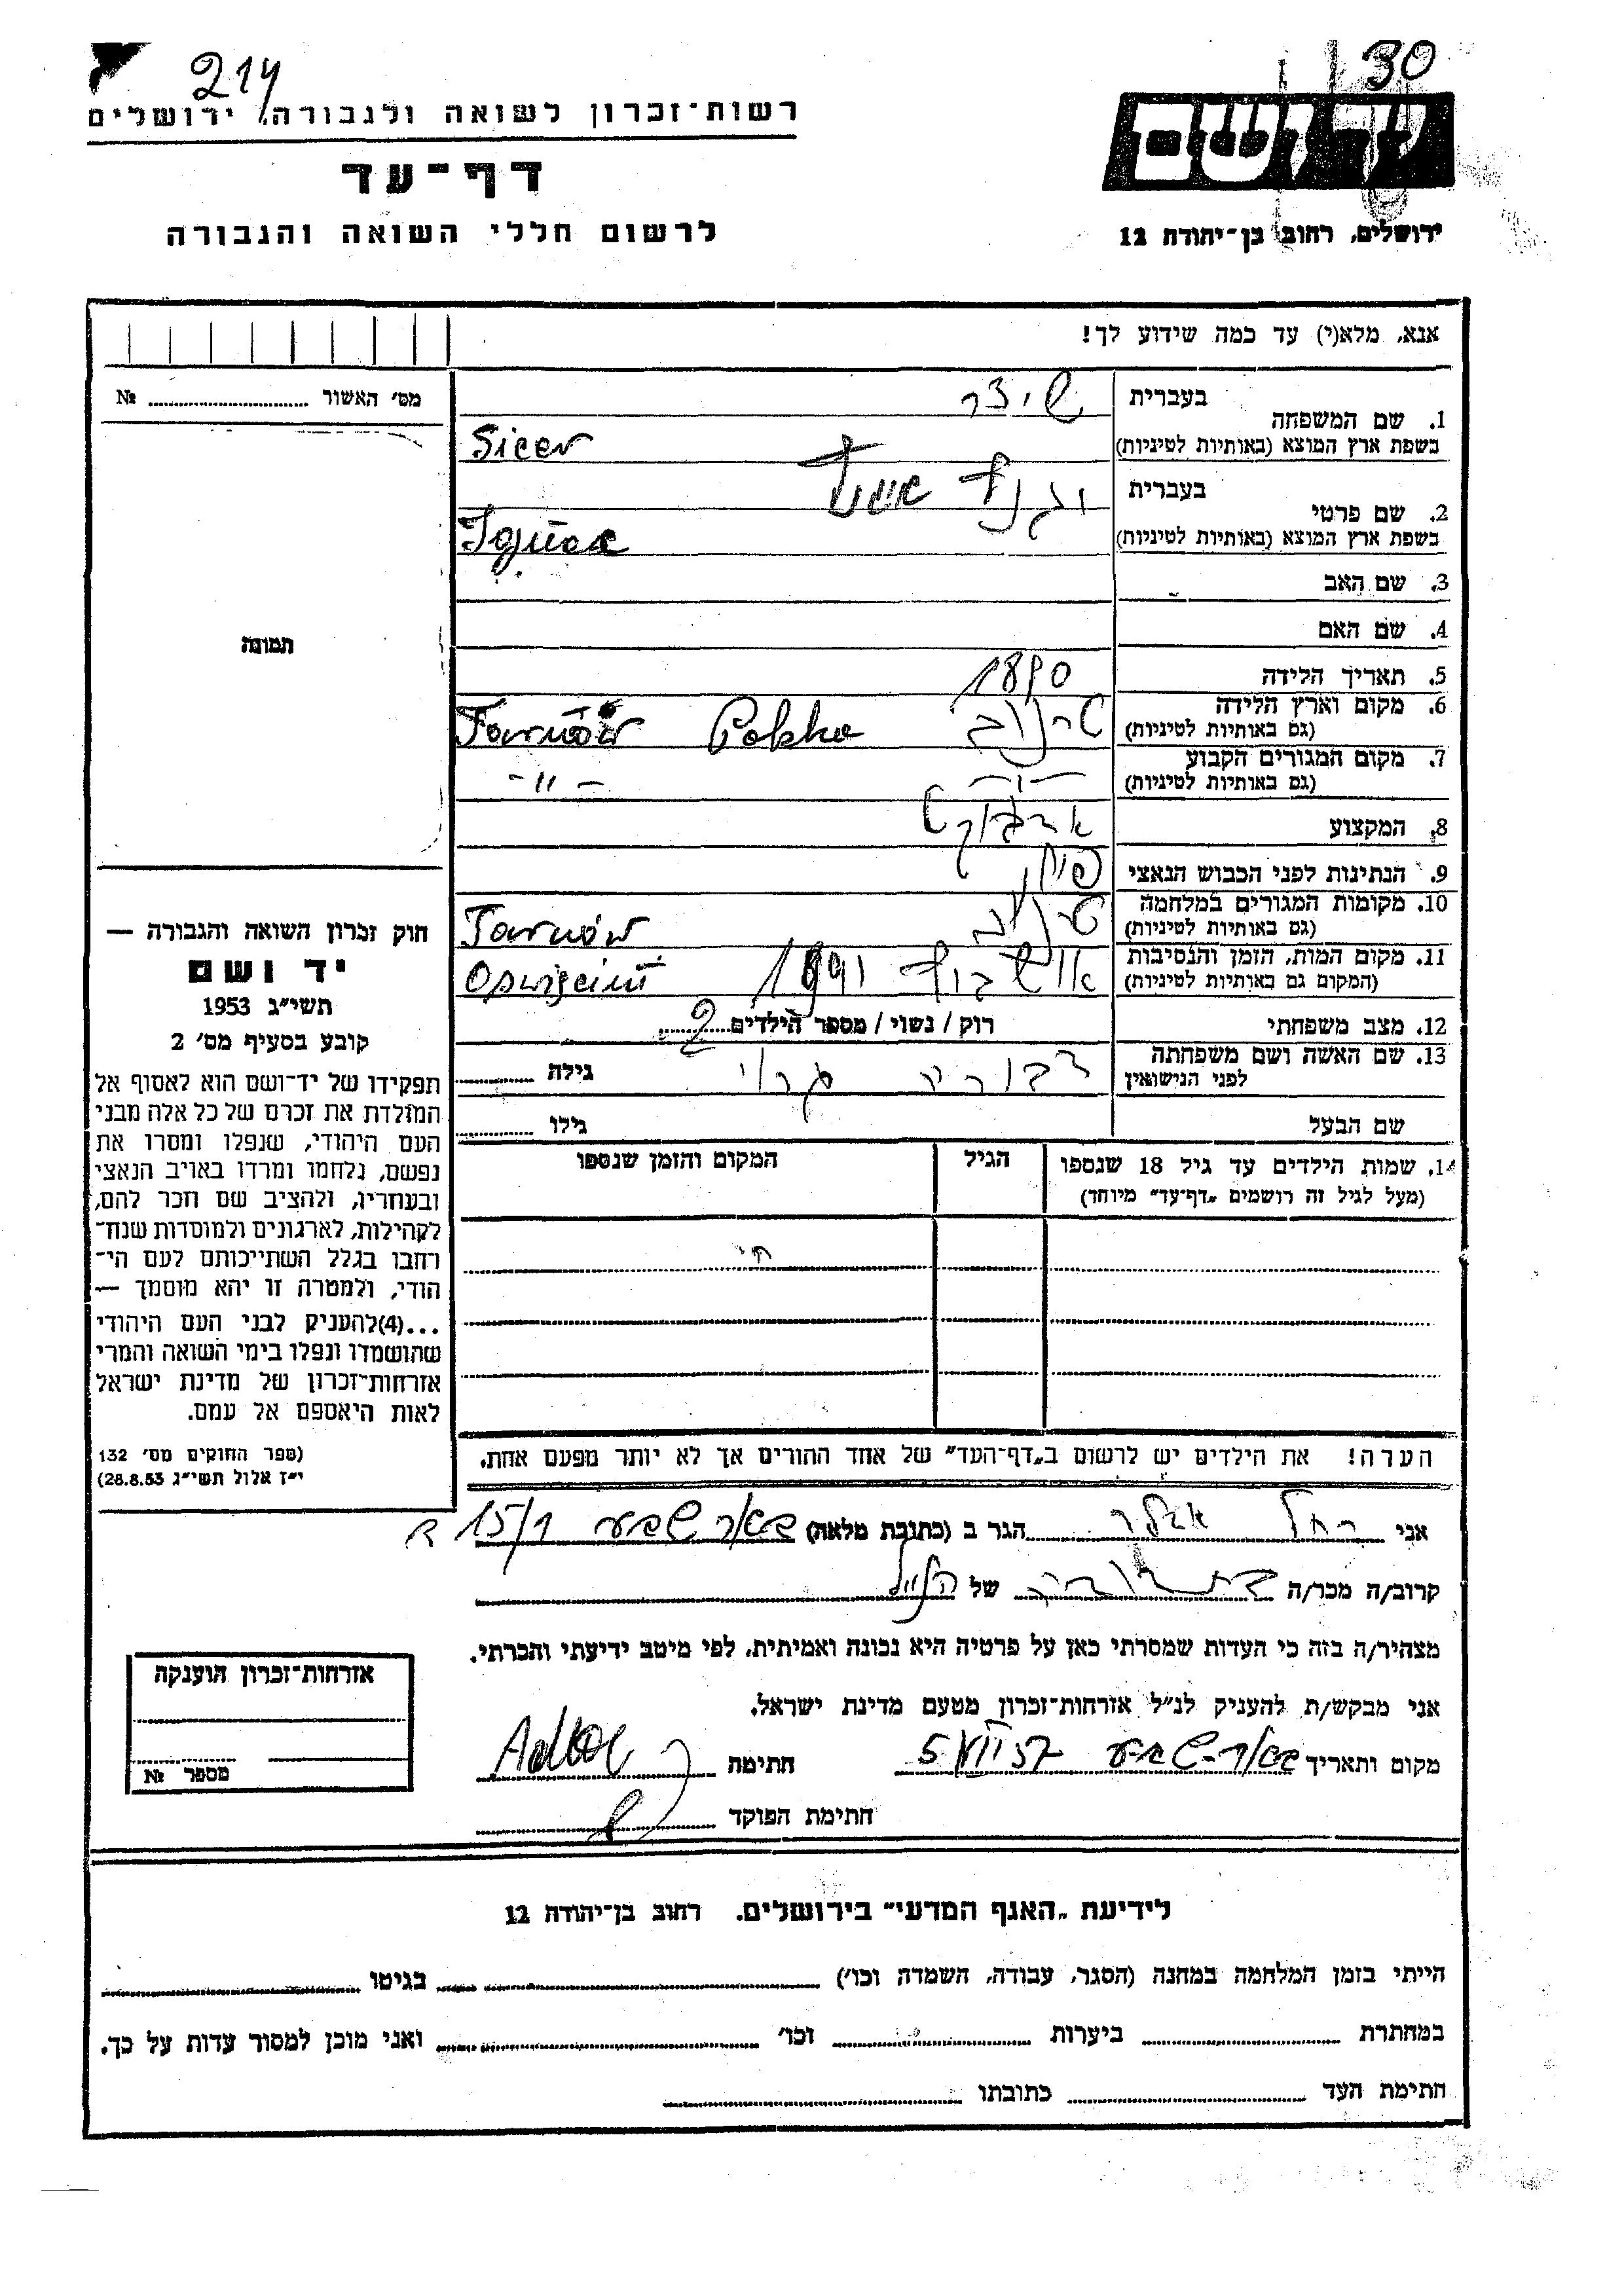 214
30
רשות-זכרון לשואה ולגבורה, ירושלים
דף-עד
לרשום חללי השואה והגבורה
ירושלים, רחוב בן-יהודה 12
אנא, מלא(י) עד כמה שידוע לך!
מס׳ האשור № 
תמונה
1. שם המשפחה בעברית שיצר
בשפת ארץ המוצא (באותיות לטיניות) Sicer
2. שם פרטי בעברית
בשפת ארץ המוצא (באותיות לטיניות)
3. שם האב
4. שם האם
5. תאריך הלידה 1890
6. מקום וארץ הלידה (גם באותיות לטיניות) טרנוב Polska Tarnów
7. מקום המגורים הקבוע (גם באותיות לטיניות) -"- -"-
8. המקצוע
9. הנתינות לפני הכבוש הנאצי
10. מקומות המגורים במלחמה (גם באותיות לטיניות) טרנוב Tarnów
11. מקום המות, הזמן והנסיבות (המקום גם באותיות לטיניות)
12. מצב משפחתי רוק / נשוי / מספר הילדים 2
13. שם האשה ושם משפחתה לפני הנישואין דבורה גילה
שם הבעל גילו
14. שמות הילדים עד גיל 18 שנספו (מעל לגיל זה רושמים „דף-עד״ מיוחד) הגיל המקום והזמן שנספו
חי
הערה! את הילדים יש לרשום ב„דף-העד״ של אחד ההורים אך לא יותר מפעם אחת.
חוק זכרון השואה והגבורה —
יד ושם
תשי״ג 1953
קובע בסעיף מס׳ 2
תפקידו של יד-ושם הוא לאסוף אל
המולדת את זכרם של כל אלה מבני
העם היהודי, שנפלו ומסרו את
נפשם, נלחמו ומרדו באויב הנאצי
ובעוזריו, ולהציב שם וזכר להם,
לקהילות, לארגונים ולמוסדות שנח-
רחבו בגלל השתייכותם לעם הי-
הודי, ולמטרה זו יהא מוסמך —
...(4)להעניק לבני העם היהודי
שהושמדו ונפלו בימי השואה והמרי
אזרחות-זכרון של מדינת ישראל
לאות היאספם אל עמם.
(ספר החוקים מס׳ 132
י״ז אלול תשי״ג 28.8.53)
אני רחל אדלר הגר ב (כתובת מלאה) באר שבע ד 15/1
קרוב/ה מכר/ה של הנ״ל
מצהיר/ה בזה כי העדות שמסרתי כאן על פרטיה היא נכונה ואמיתית, לפי מיטב ידיעתי והכרתי.
אני מבקש/ת להעניק לנ״ל אזרחות-זכרון מטעם מדינת ישראל.
מקום ותאריך באר-שבע 5/VII 57 חתימה Adler
חתימת הפוקד
אזרחות-זכרון הוענקה
מספר №
לידיעת „האגף המדעי״ בירושלים. רחוב בן-יהודה 12
הייתי בזמן המלחמה במחנה (הסגר, עבודה, השמדה וכו׳) בגיטו
במחתרת ביערות וכו׳ ואני מוכן למסור עדות על כך.
חתימת העד כתובתו